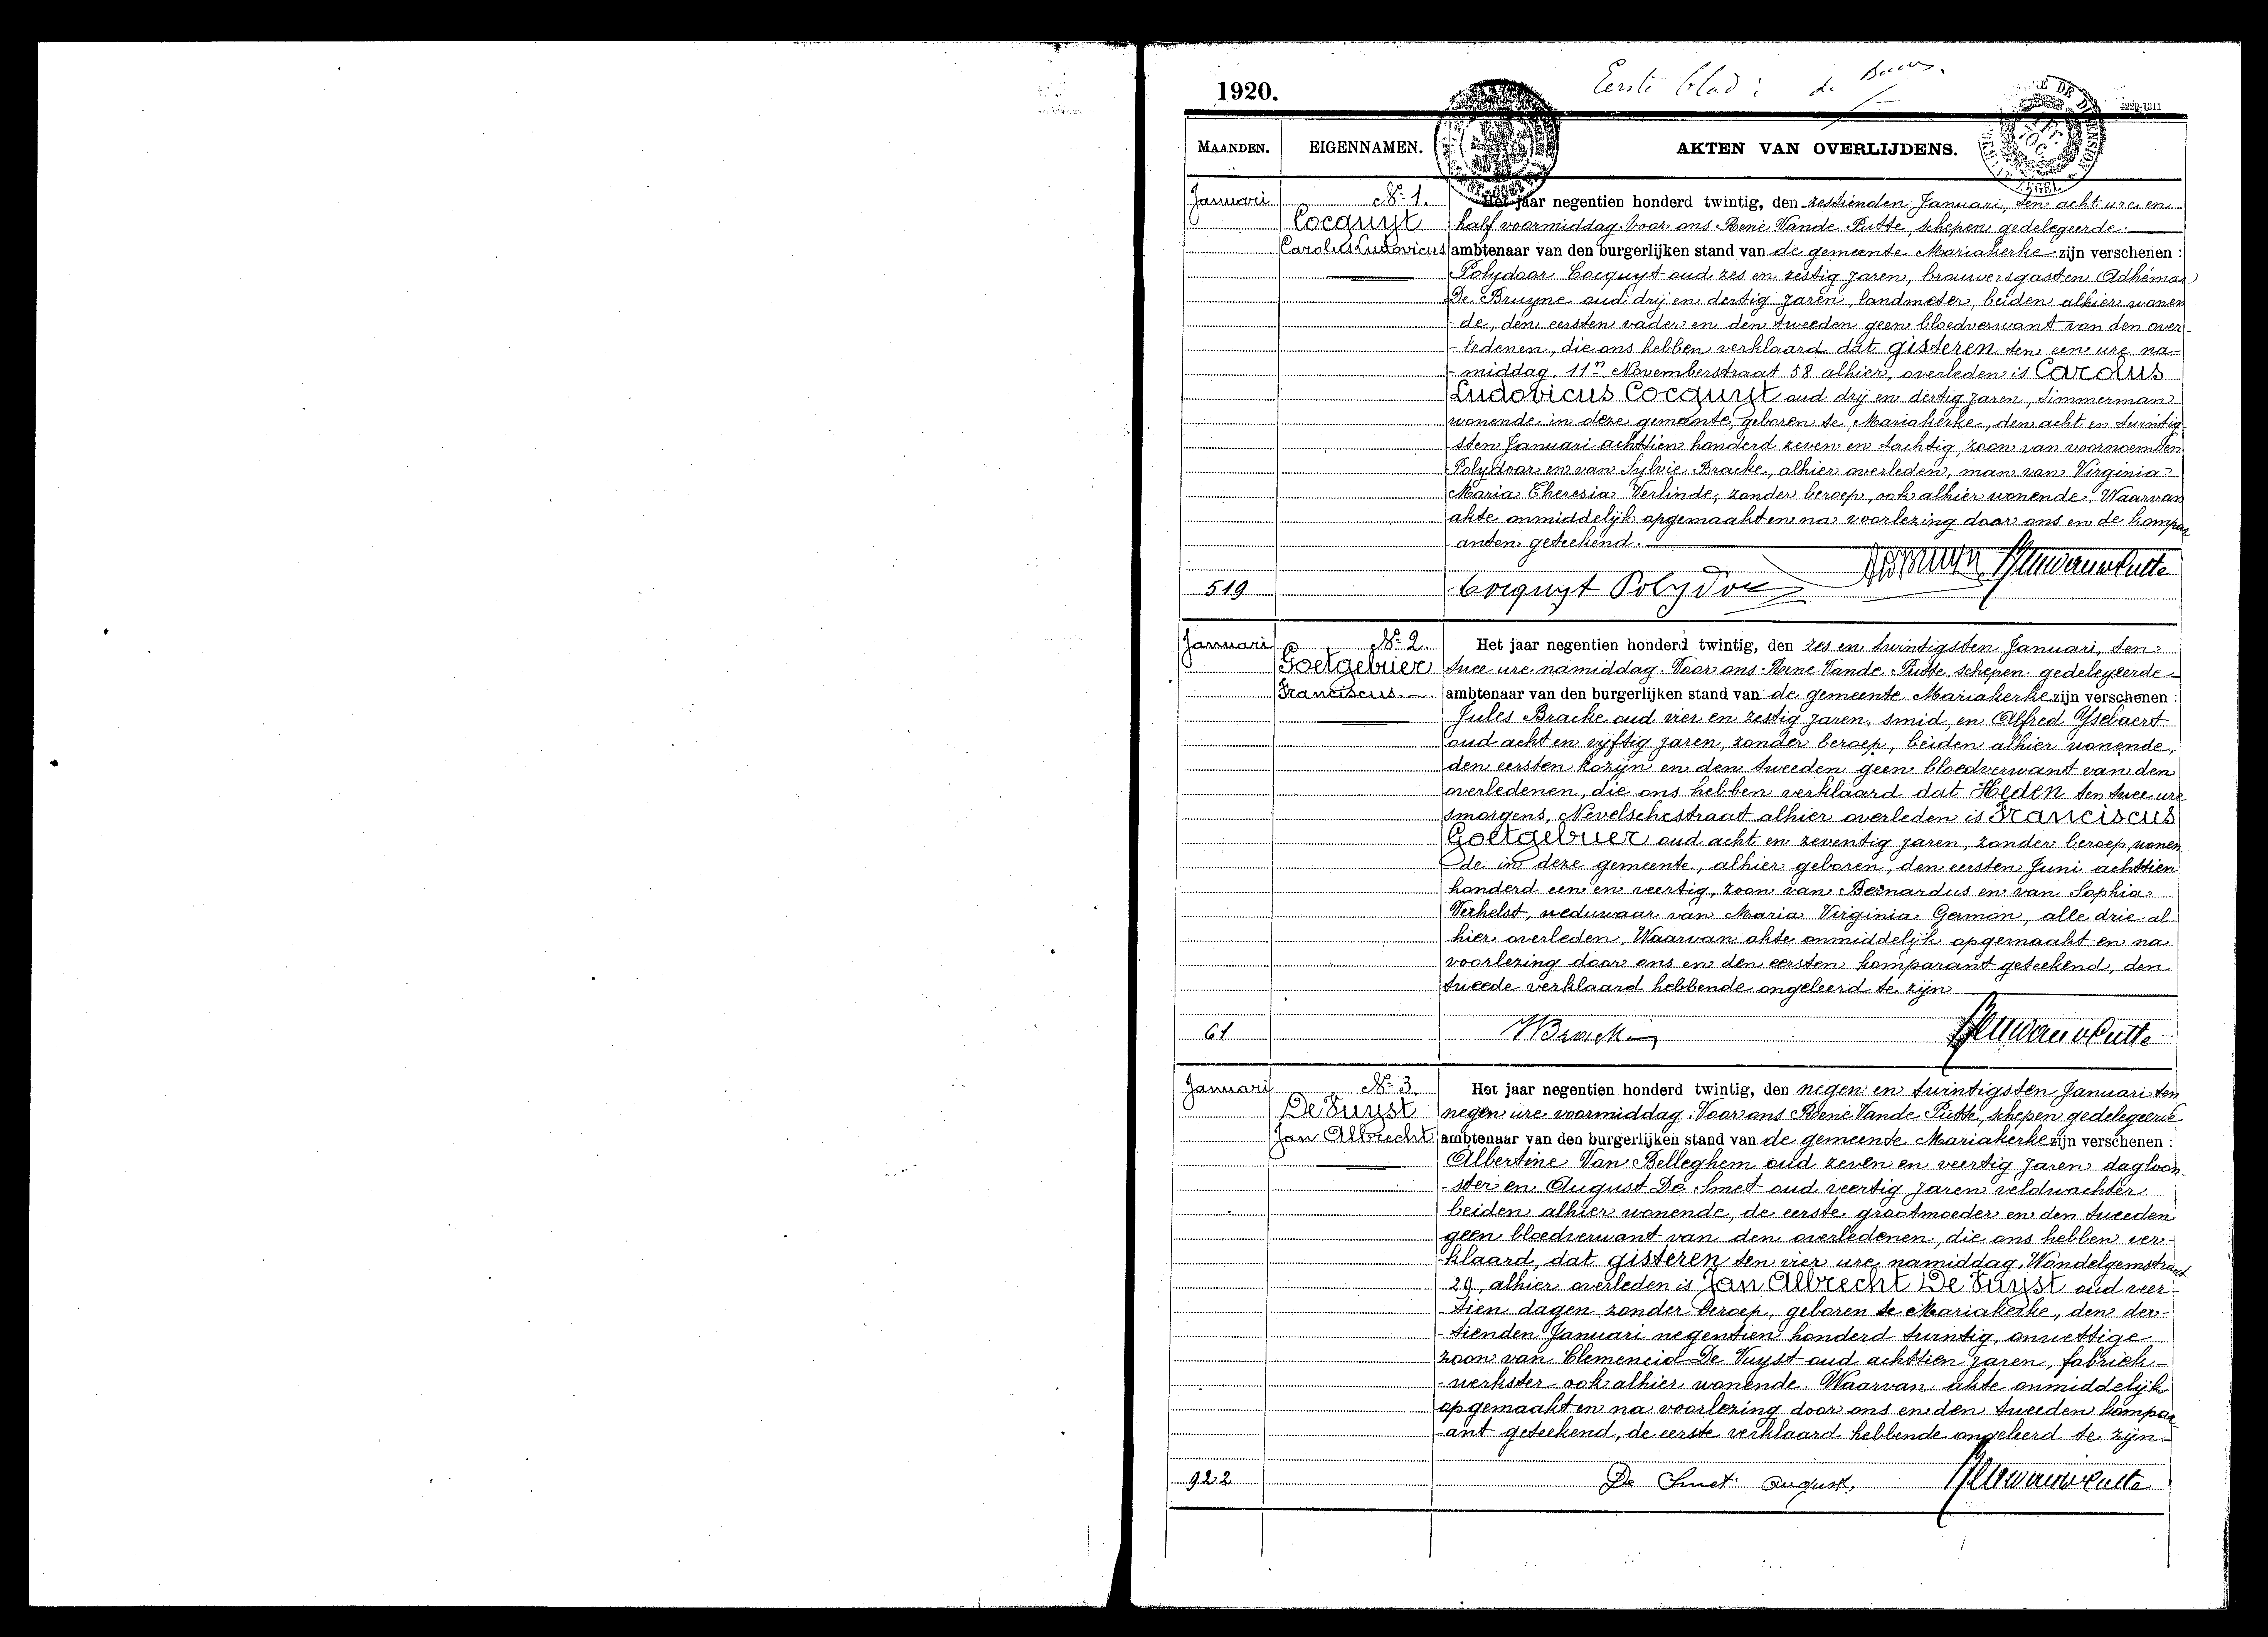 Eerste blad: de
1920.
4229-1311
MAANDEN.
EIGENNAMEN.
AKTEN VAN OVERLIJDENS.
Januari
Nr 1.
Cocquyt
Carolus Ludovicus
Het jaar negentien honderd twintig, den zestienden Januari, ten acht ure en
half voormiddag. Voor ons René Vande Putte, schepen gedelegeerde
ambtenaar van den burgerlijken stand van de gemeente Mariakerke zijn verschenen :
Polydoor Cocquyt oud zes en zestig jaren, brouwersgast en Adhémar
De Bruyne oud drij en dertig jaren, landmeter, beiden alhier wonen
-de, den eersten vader en den tweeden geen bloedverwant van den over-
-ledenen, die ons hebben verklaard dat gisteren ten een ure na-
-middag, 11n Novemberstraat 58 alhier, overleden is Carolus
Ludovicus Cocquyt oud drij en dertig jaren, timmerman
wonende in deze gemeente, geboren te Mariakerke, den acht en twintig
sten Januari achttien honderd zeven en tachtig, zoon van voornoemden
Polydoor en van Sylvie Bracke, alhier overleden, man van Virginia
Maria Theresia Verlinde, zonder beroep, ook alhier wonende. Waarvan
akte onmiddelijk opgemaakt en na voorlezing door ons en de kompar
anten geteekend.
519
Cocquyt Polydor
Januari
Nr 2.
Goetgebuer
Franciscus
Het jaar negentien honderd twintig, den zes en twintigsten Januari, ten
twee ure namiddag. Voor ons René Vande Putte, schepen gedelegeerde
ambtenaar van den burgerlijken stand van de gemeente Mariakerke zijn verschenen :
Jules Bracke oud vier en zestig jaren, smid, en Alfred Ysebaert
oud acht en vijftig jaren, zonder beroep, beiden alhier wonende,
den eersten kozijn en den tweeden geen bloedverwant van den
overledenen, die ons hebben verklaard dat Heden ten twee ure
smorgens, Nevelschestraat alhier overleden is Franciscus
Goetgebuer oud acht en zeventig jaren, zonder beroep, wonen
-de in deze gemeente, alhier geboren, den eersten Juni achttien
honderd een en veertig, zoon van Bernardus en van Sophia
Verhelst, weduwaar van Maria Virginia Germon, alle drie al
hier overleden. Waarvan akte onmiddelijk opgemaakt en na
voorlezing door ons en den eersten komparant geteekend, den
tweede verklaard hebbende ongeleerd te zijn
61
Januari
Nr 3.
De Vuyst
Jan Albrecht
Het jaar negentien honderd twintig, den negen en twintigsten Januari ten
negen ure voormiddag. Voor ons René Vande Putte, schepen gedelegeerde
ambtenaar van den burgerlijken stand van de gemeente Mariakerke zijn verschenen :
Albertine Van Belleghem oud zeven en veertig jaren dagloon-
-ster en August De Smet oud veertig jaren veldwachter
beiden alhier wonende, de eerste grootmoeder en den tweeden
geen bloedverwant van den overledenen, die ons hebben ver-
klaard, dat gisteren ten vier ure namiddag, Wondelgemstraat
29, alhier overleden is Jan Albrecht De Vuyst oud veer-
-tien dagen zonder beroep, geboren te Mariakerke, den der-
-tienden Januari negentien honderd twintig, onwettige
zoon van Clemencia De Vuyst oud achttien jaren, fabriek-
-werkster ook alhier wonende. Waarvan akte onmiddelijk
opgemaakt en na voorlezing door ons en den tweeden kompar-
-ant geteekend, de eerste verklaard hebbende ongeleerd te zijn
922
De Smet August,